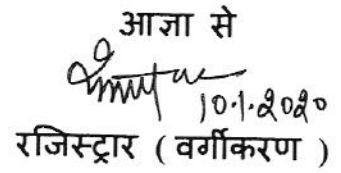 आज्ञा से
10.1.2020
रजिस्ट्रार ( वर्गीकरण )